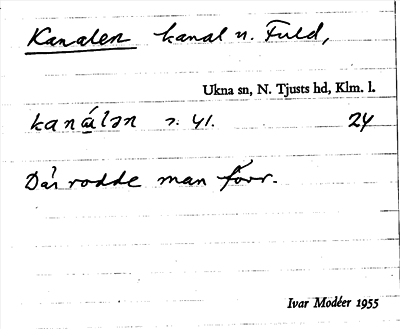 Kanalen kanal n. Fuld,
Ukna sn, N. Tjusts hd, Klm. l.
kanálən 24
Där rodde man förr.
Ivar Modéer 1955